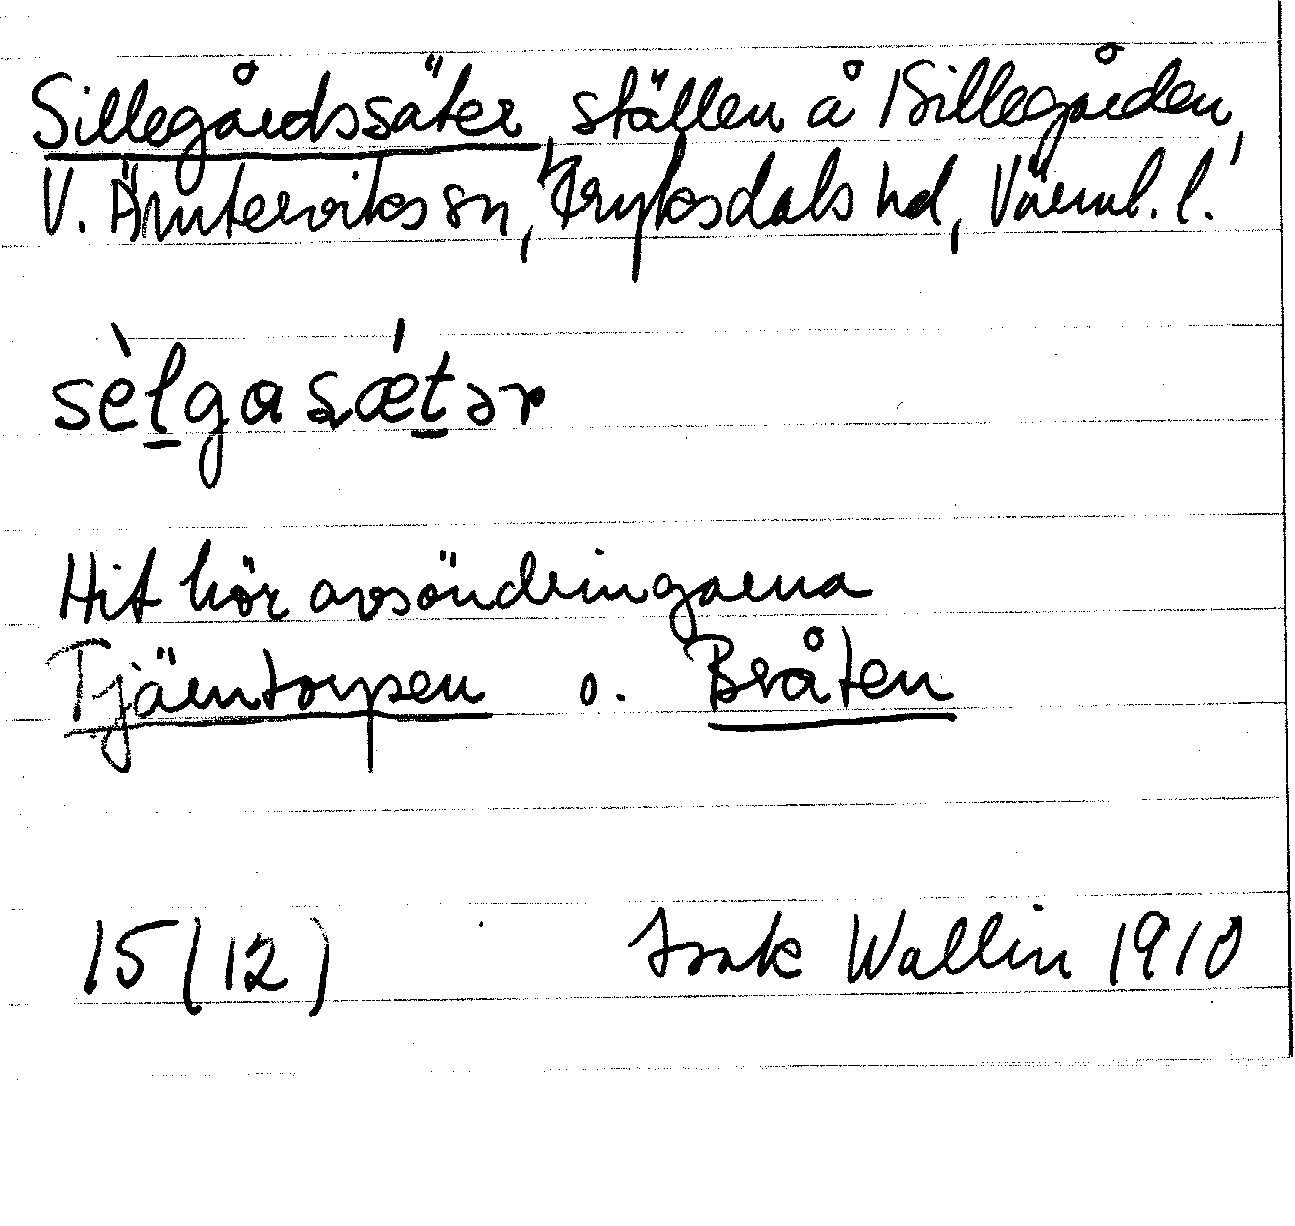 Sillegårdssäter, ställen å 1 Sillegården,
V. Ämterviks sn, Fryksdals hd, Värml. l.
sèl̠gasǽt̠ər
Hit hör avsöndringarna
Tjärntorpen o. Bråten
15 (12) Isak Wallin 1910